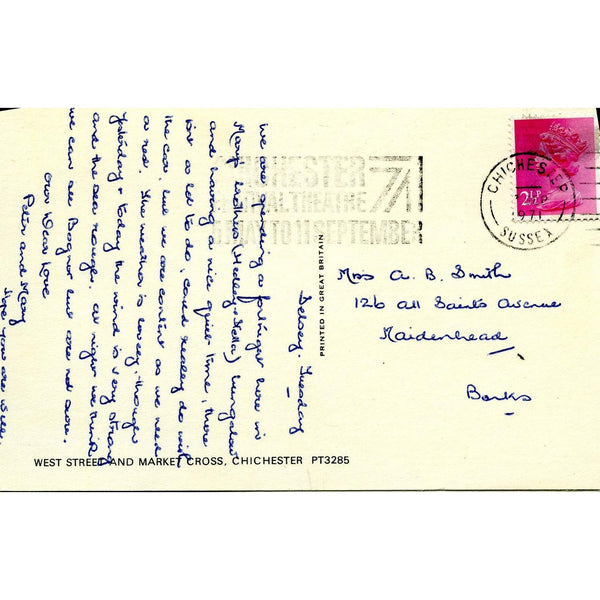 Selsey. Tuesday
We are spending a fortnight here in
Mary's brother's (Hedley + Stella) bungalow
and having a nice quiet time, there
isn't a lot to do, could really do with
the car, but we are content as we need
a rest. The weather is lovely, though
yesterday + today the wind is very strong
and the sea rough. At night we think
we can see Bognor but are not sure.
Our Dear Love
Peter and Mary
Hope you are well.
CHICHESTER 77
FESTIVAL THEATRE
5 MAY TO 11 SEPTEMBER
PRINTED IN GREAT BRITAIN
2½P
CHICHESTER
1971
SUSSEX
Mrs A. B. Smith
126 All Saints Avenue
Maidenhead
Berks
WEST STREET AND MARKET CROSS, CHICHESTER PT3285